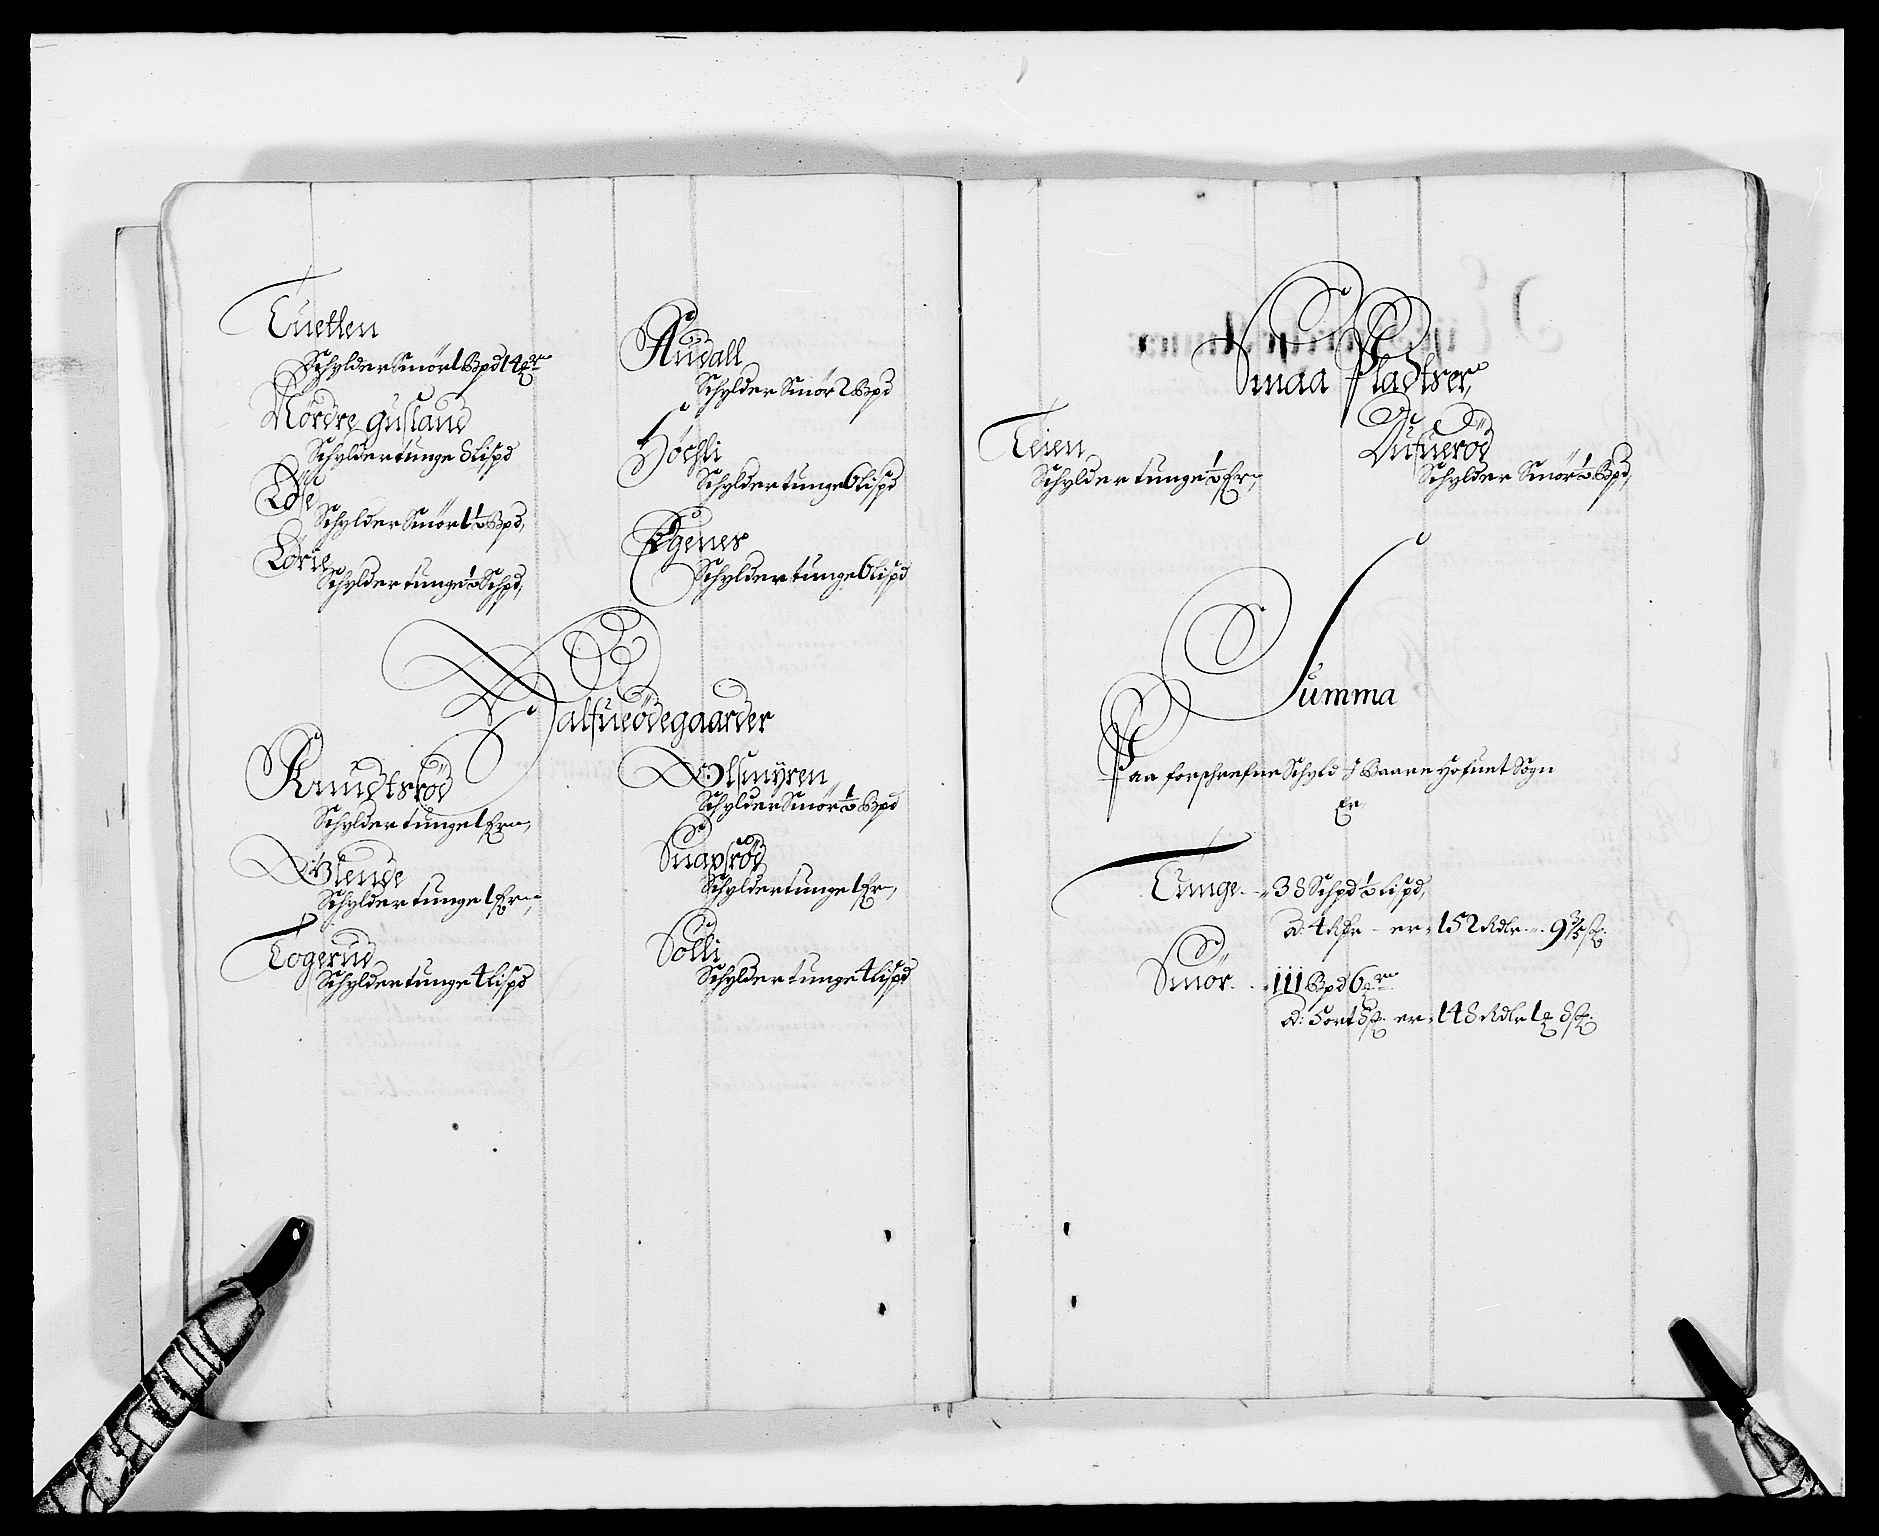 Tuetten
Schylder Smör 1 Bpd 14 mr
Nordre Gusland
Schylder tunge 8 lispd
Löe
Schylder Smör 1½ Bpd,
Lorie
Schylder tunge ½ Schpd,
Audall
Schylder Smör 2 Bpd
Höchli
Schylder tunge 6 lispd
Egenes
Schylder tunge 6 lispd
Halfueödegaarder
Knudtsröd
Schylder tunge 1 Fr.,
Glende
Schylder tunge 1 Fr.,
Togerud
Schylder tunge 4 lispd
Olsmyren
Schylder Smör ½ Bpd
Snapsröd
Schylder tunge 1 Fr.,
Solli
Schylder tunge 4 lispd
Smaa Pladtser,
Teien
Schylder tunge ½ Fr.,
Aufueröd
Schylder Smör ½ Bpd,
Summa
Paa forschrefne Schyld J Baare Hofuet Sogn
Er
Tunge - 38 Schpd ½ lispd,
A: 4 - er - 152 Rdlr - 9 3/5 s.
Smör - 111 Bpd 6 mr
A: 5 ort 8 s. er - 148 Rdlr 1 8 s.